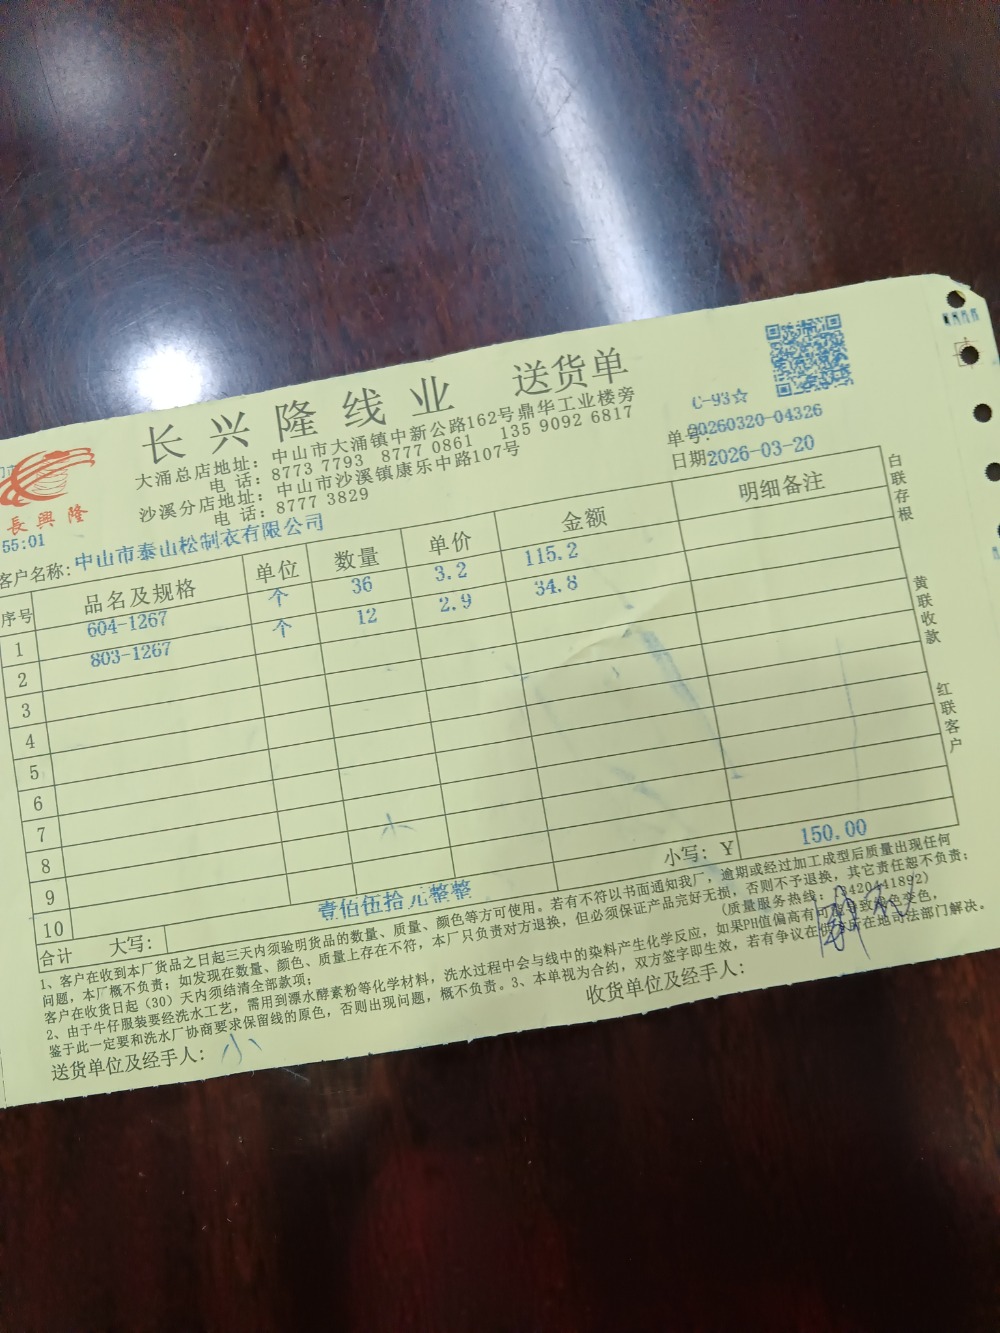 长兴隆线业 送货单
C-93☆
大涌总店地址: 中山市大涌镇中新公路162号鼎华工业楼旁
电 话: 8773 7793 8777 0861 135 9092 6817
沙溪分店地址: 中山市沙溪镇康乐中路107号
电 话: 8777 3829
单号: 20260320-04326
日期: 2026-03-20
長興隆
55:01
客户名称: 中山市泰山松制衣有限公司
序号 品名及规格 单位 数量 单价 金额 明细备注
1 604-1267 个 36 3.2 115.2
2 803-1267 个 12 2.9 34.8
3
4
5
6
7
8
9
10
合计 大写: 壹佰伍拾元整整 小写: Y 150.00
白联存根
黄联收款
红联客户
1、客户在收到本厂货品之日起三天内须验明货品的数量、质量、颜色等方可使用。若有不符以书面通知我厂, 逾期或经过加工成型后质量出现任何
问题, 本厂概不负责; 如发现在数量、颜色、质量上存在不符, 本厂只负责对方退换, 但必须保证产品完好无损, 否则不予退换, 其它责任恕不负责;
客户在收货日起 (30) 天内须结清全部款项;
(质量服务热线:
2、由于牛仔服装要经洗水工艺, 需用到漂水酵素粉等化学材料, 洗水过程中会与线中的染料产生化学反应, 如果PH值偏高有可能导致褪色变色,
鉴于此一定要和洗水厂协商要求保留线的原色, 否则出现问题, 概不负责。3、本单视为合约, 双方签字即生效, 若有争议在供方所在地司法部门解决。
送货单位及经手人: 小
收货单位及经手人: